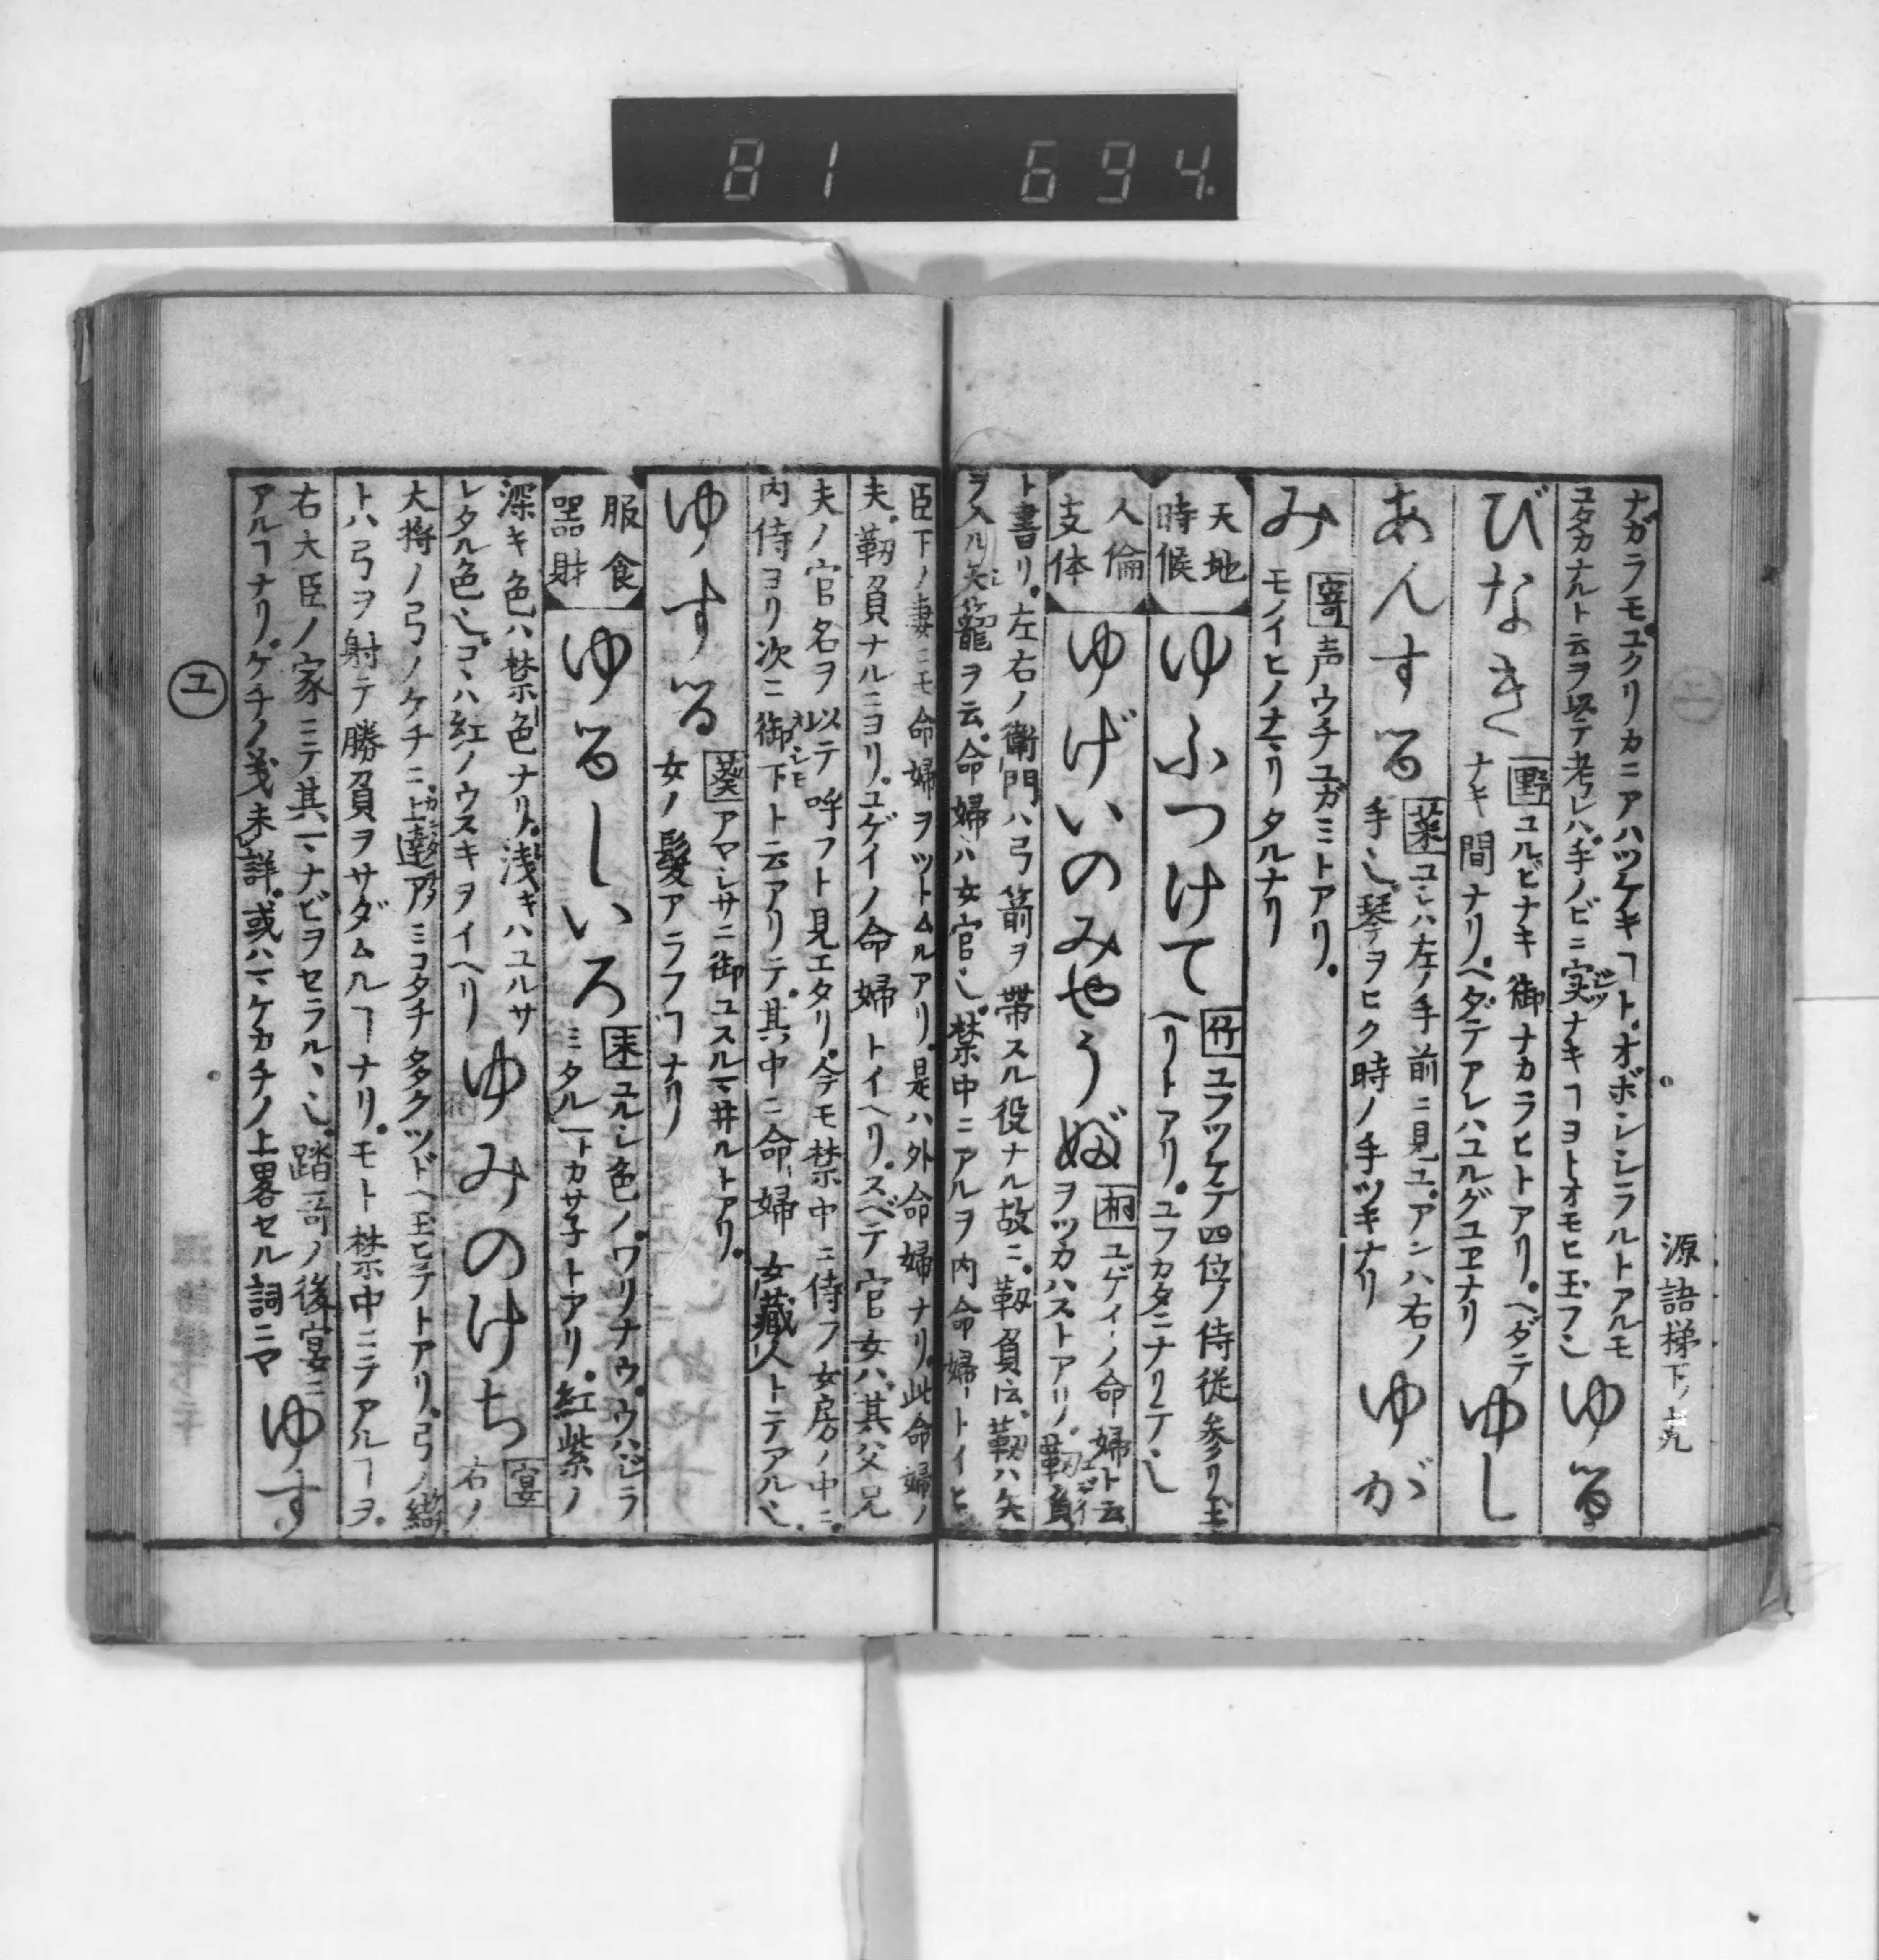 81 694
源語梯下ノ十九
ナガラモ。ユクリカニアハツケキヿト。オボシシラルトアルモ
ユタカナルト云ヲ以テ考レハ。手ノビニ実ナキヿヨトオモヒ玉フシ
ゆる
びなき
野ユルビナキ御ナカラヒトアリ。ヘダテ
ナキ間ナリ。ヘダテアレハユルグユヱナリ
ゆし
あんする
菜ユシハ左ノ手前ニ見ユ。アンハ右ノ
手也。琴ヲヒク時ノ手ツキナリ
ゆが
み
寄声ウチユガミトアリ。
モノイヒノナマリタルナリ
天地
時候
ゆふつけて
竹ユフツケテ四位ノ侍従参リ玉
ヘリトアリ。ユフカタニナリテ也
人倫
支体
ゆげいのみやうぶ
桐ユゲイノ命婦ト云
ヲツカハストアリ。靱負
ト書リ。左右ノ衛門ハ弓箭ヲ帯スル役ナル故ニ。靱負云。靱ハ矢
ヲ入ル矢籠ヲ云。命婦ハ女官也。禁中ニアルヲ内命婦トイヒ
臣下ノ妻ニモ命婦ヲツトムルアリ。是ハ外命婦ナリ。此命婦ノ
夫。靱負ナルニヨリ。ユゲイノ命婦トイヘリ。スベテ官女ハ。其父兄
夫ノ官名ヲ以テ呼フト見エタリ。今モ禁中ニ侍フ女房ノ中ニ。
内侍ヨリ次ニ御下ト云アリテ。其中ニ命婦女蔵人トテアル也。
ゆする
葵アヤシサニ御ユスルマ井ルトアリ。
女ノ髪アラフヿナリ
服食
器財
ゆるしいろ
末ユルシ色ノ。ワリナウ。ウハジラ
ミタル一トカサ子トアリ。紅紫ノ
深キ色ハ禁色ナリ。浅キハユルサ
レタル色也。コヽハ紅ノウスキヲイヘリ
ゆみのけち
宴右ノ
大将ノ弓ノケチニ。上達アマタミコタチタクツドヘ玉ヒテトアリ。弓ノ
トハ弓ヲ射テ勝負ヲサダムルヿナリ。モト禁中ニテアルヿヲ。
右大臣ノ家ニテ其マヽナビヲセラルヽ也。踏哥ノ後宴ニ
アルヿナリ。ケチノ義未詳。或ハケカチノ上畧セル詞ニヤ
ゆす
ユ